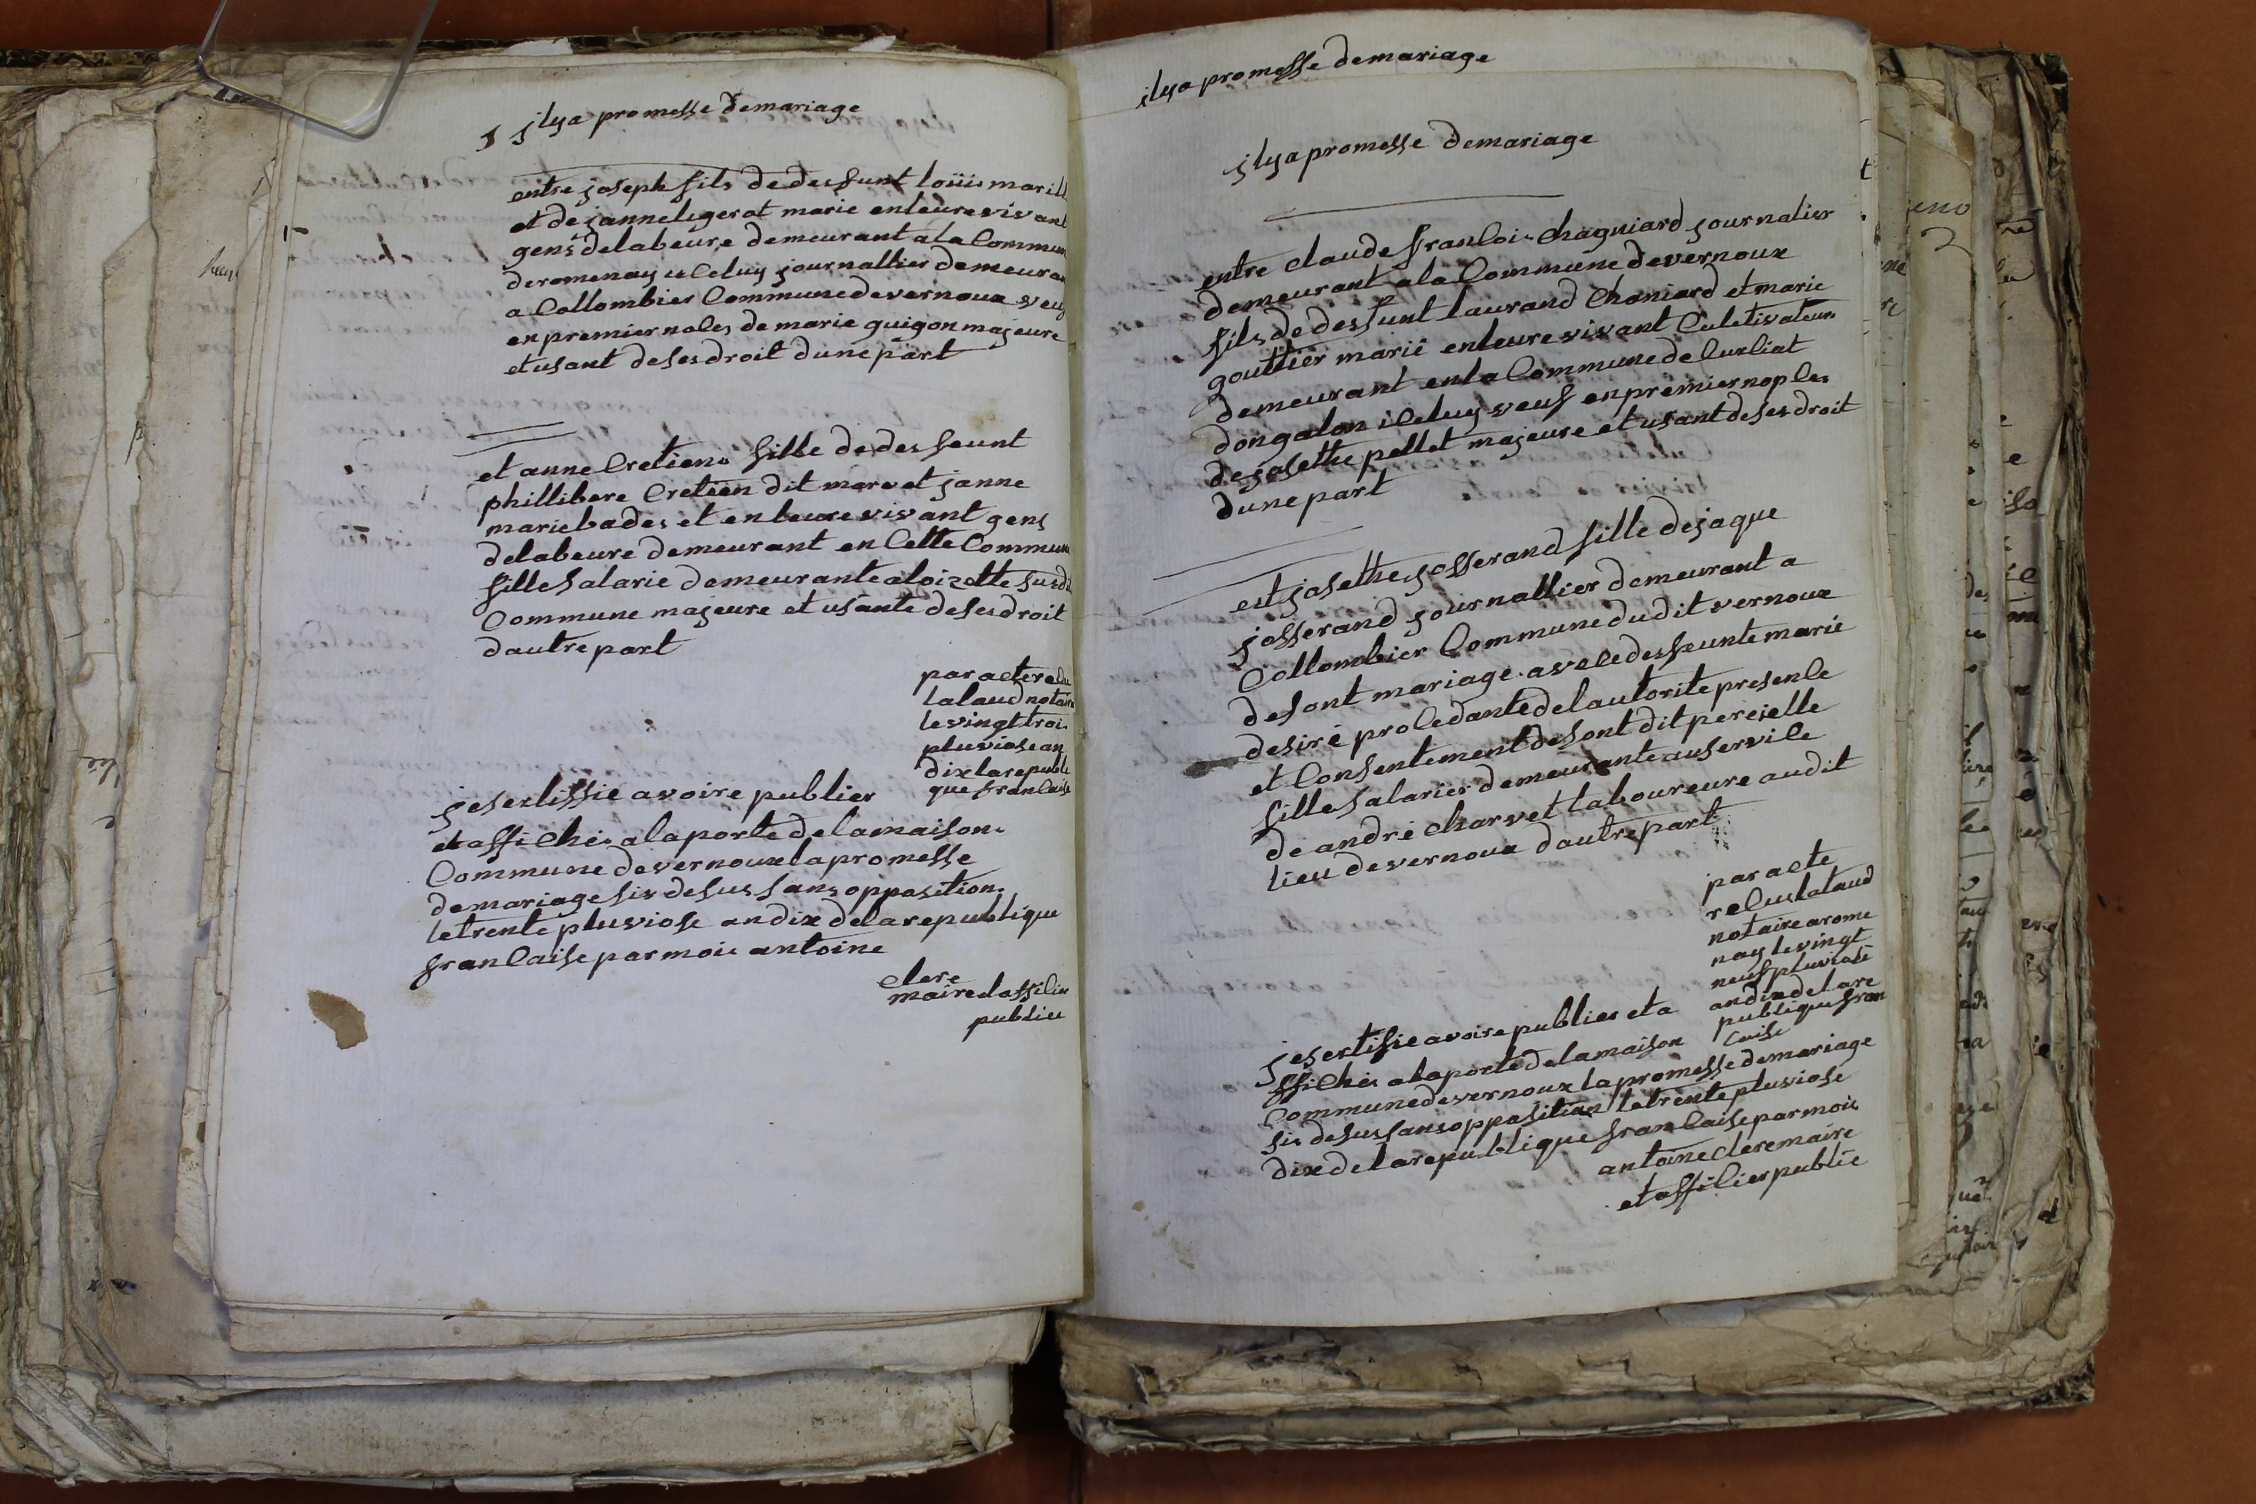 jlya promesse demariage
entre joseph fils de desfunt loüis marill
et de janneligerot marie enleurevivant
gens delabeure demeurant ala Commun
deromenay iceluy journallier demeuran
a Collombier Commune devernoux veuf
en premier noles de marie guigon majeure
et usant deses droit dune part
et anne Cretiene fille de desfeunt
phillibere Cretien dit more et janne
marie bades et en leurevivant gens
delabeure demeurant en Cette Commun
fille Salarie demeurante aloizette susdi
Commune majeure et usante deses droit
dautre part
par acte relu
lalaud notair
le vingt troi
pluviose an
dix larepubli
que francaise
jesertiffie avoire publier
et affiche alaporte delamaison
Commune devernoux lapromesse
demariage sis desus sans opposition
letrente pluviose an dix delarepublique
francaise par moi antoine
clere
maire et offilie
publier
ilya promesse demariage
jlya promesse demariage
entre claude francoi Chagniard journalier
demeurant ala Commune devernoux
fils de desfunt laurand Chaniard et marie
gouttier marie enleure vivant Culetivateur
demeurant enla Commune de Curliat
dongalon iceluy veuf en premier nople
de josethe pellet majeure et usant deses droit
dune part
est josethe josserand fille dejaque
josserand journallier demeurant a
Collombier Commune dudit vernoux
desont mariage avec desfeunte marie
desiré proledante delautorite presence
et Consentement desont dit pere jelle
fille Salarier demeurante auservile
de andré charvet laboureure audit
lieu devernoux dautre part
par acte
relu lalaud
notaire arome
nay levingt
neuf pluviose
an dix delare
publique fran
Caise
jesertifie avoire publier et a
ffiche alaporte delamaison
Commune devernoux lapromesse demariage
sis desus sans opposition letrente pluviose
dix delarepublique francaise par moi
antoine clere maire
et offilier publie